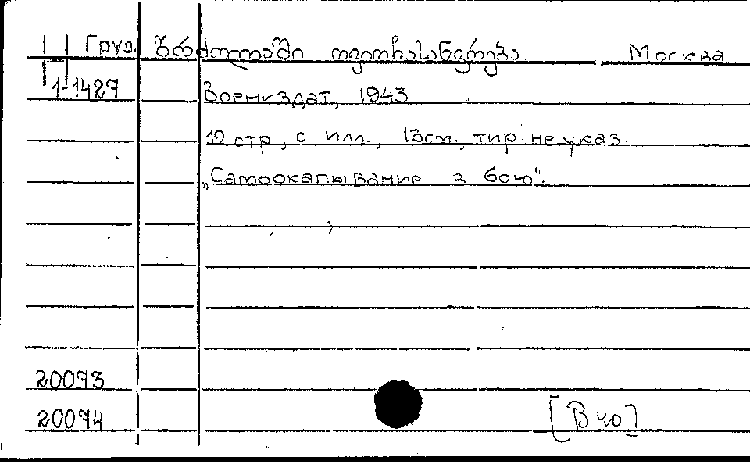 Груз. ბრძოლაში თვითჩასანგრება Москва
1-1427 Воениздат, 1943
10 стр, с илл, 13см, тир. не указ.
„Самоокапывание в бою".
20093
20094
[В 40]